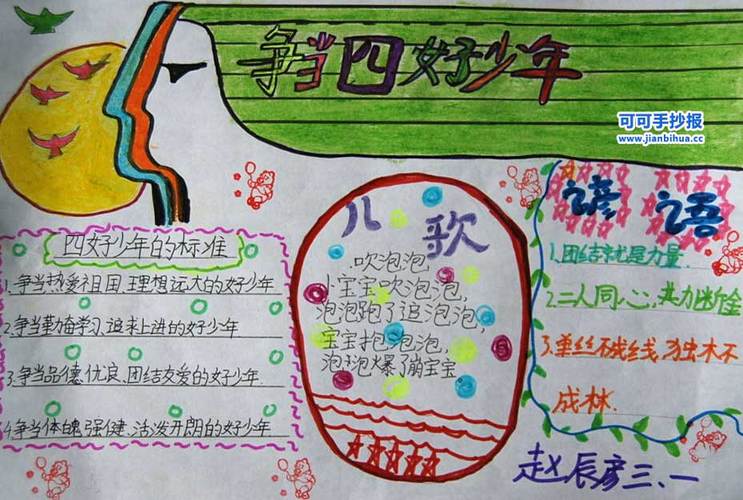 争当四好少年
可可手抄报
www.jianbihua.cc
四好少年的标准
1.争当热爱祖国、理想远大的好少年
2.争当勤奋学习、追求上进的好少年
3.争当品德优良、团结友爱的好少年
4.争当体魄强健、活泼开朗的好少年
儿歌
吹泡泡,
小宝宝吹泡泡,
泡泡跑了追泡泡,
宝宝抱泡泡,
泡泡爆了崩宝宝
谚语
1.团结就是力量
2.二人同心,其力断金
3.单丝不成线,独木不
成林.
赵辰彦三.一